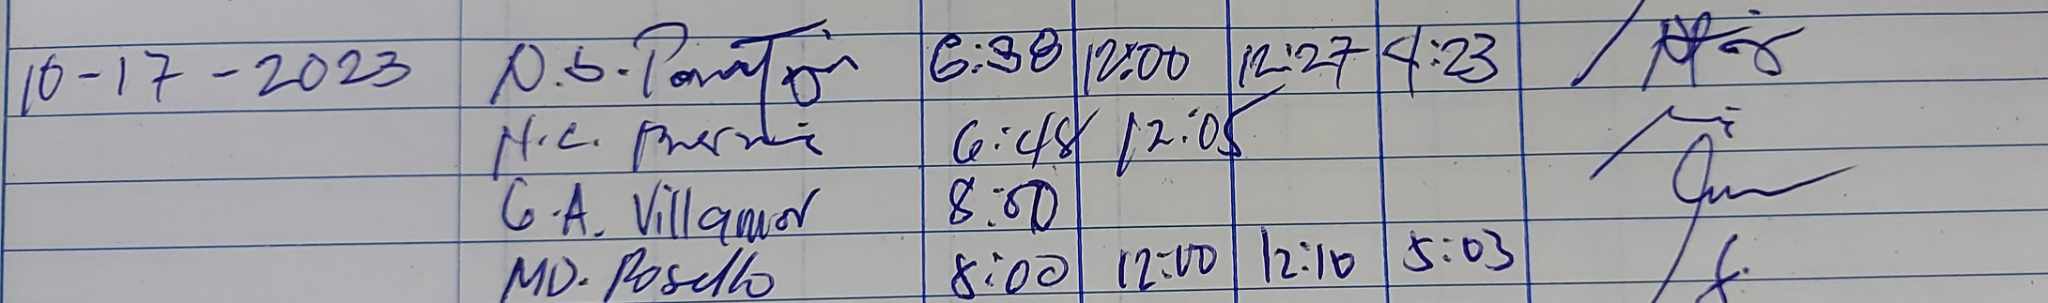 10-17-2023 N.S. 6:38 12:00 12:27 4:23
H.C. 6:48 12:05
G.A. Villamor 8:00
MD. Rosello 8:00 12:00 12:10 5:03